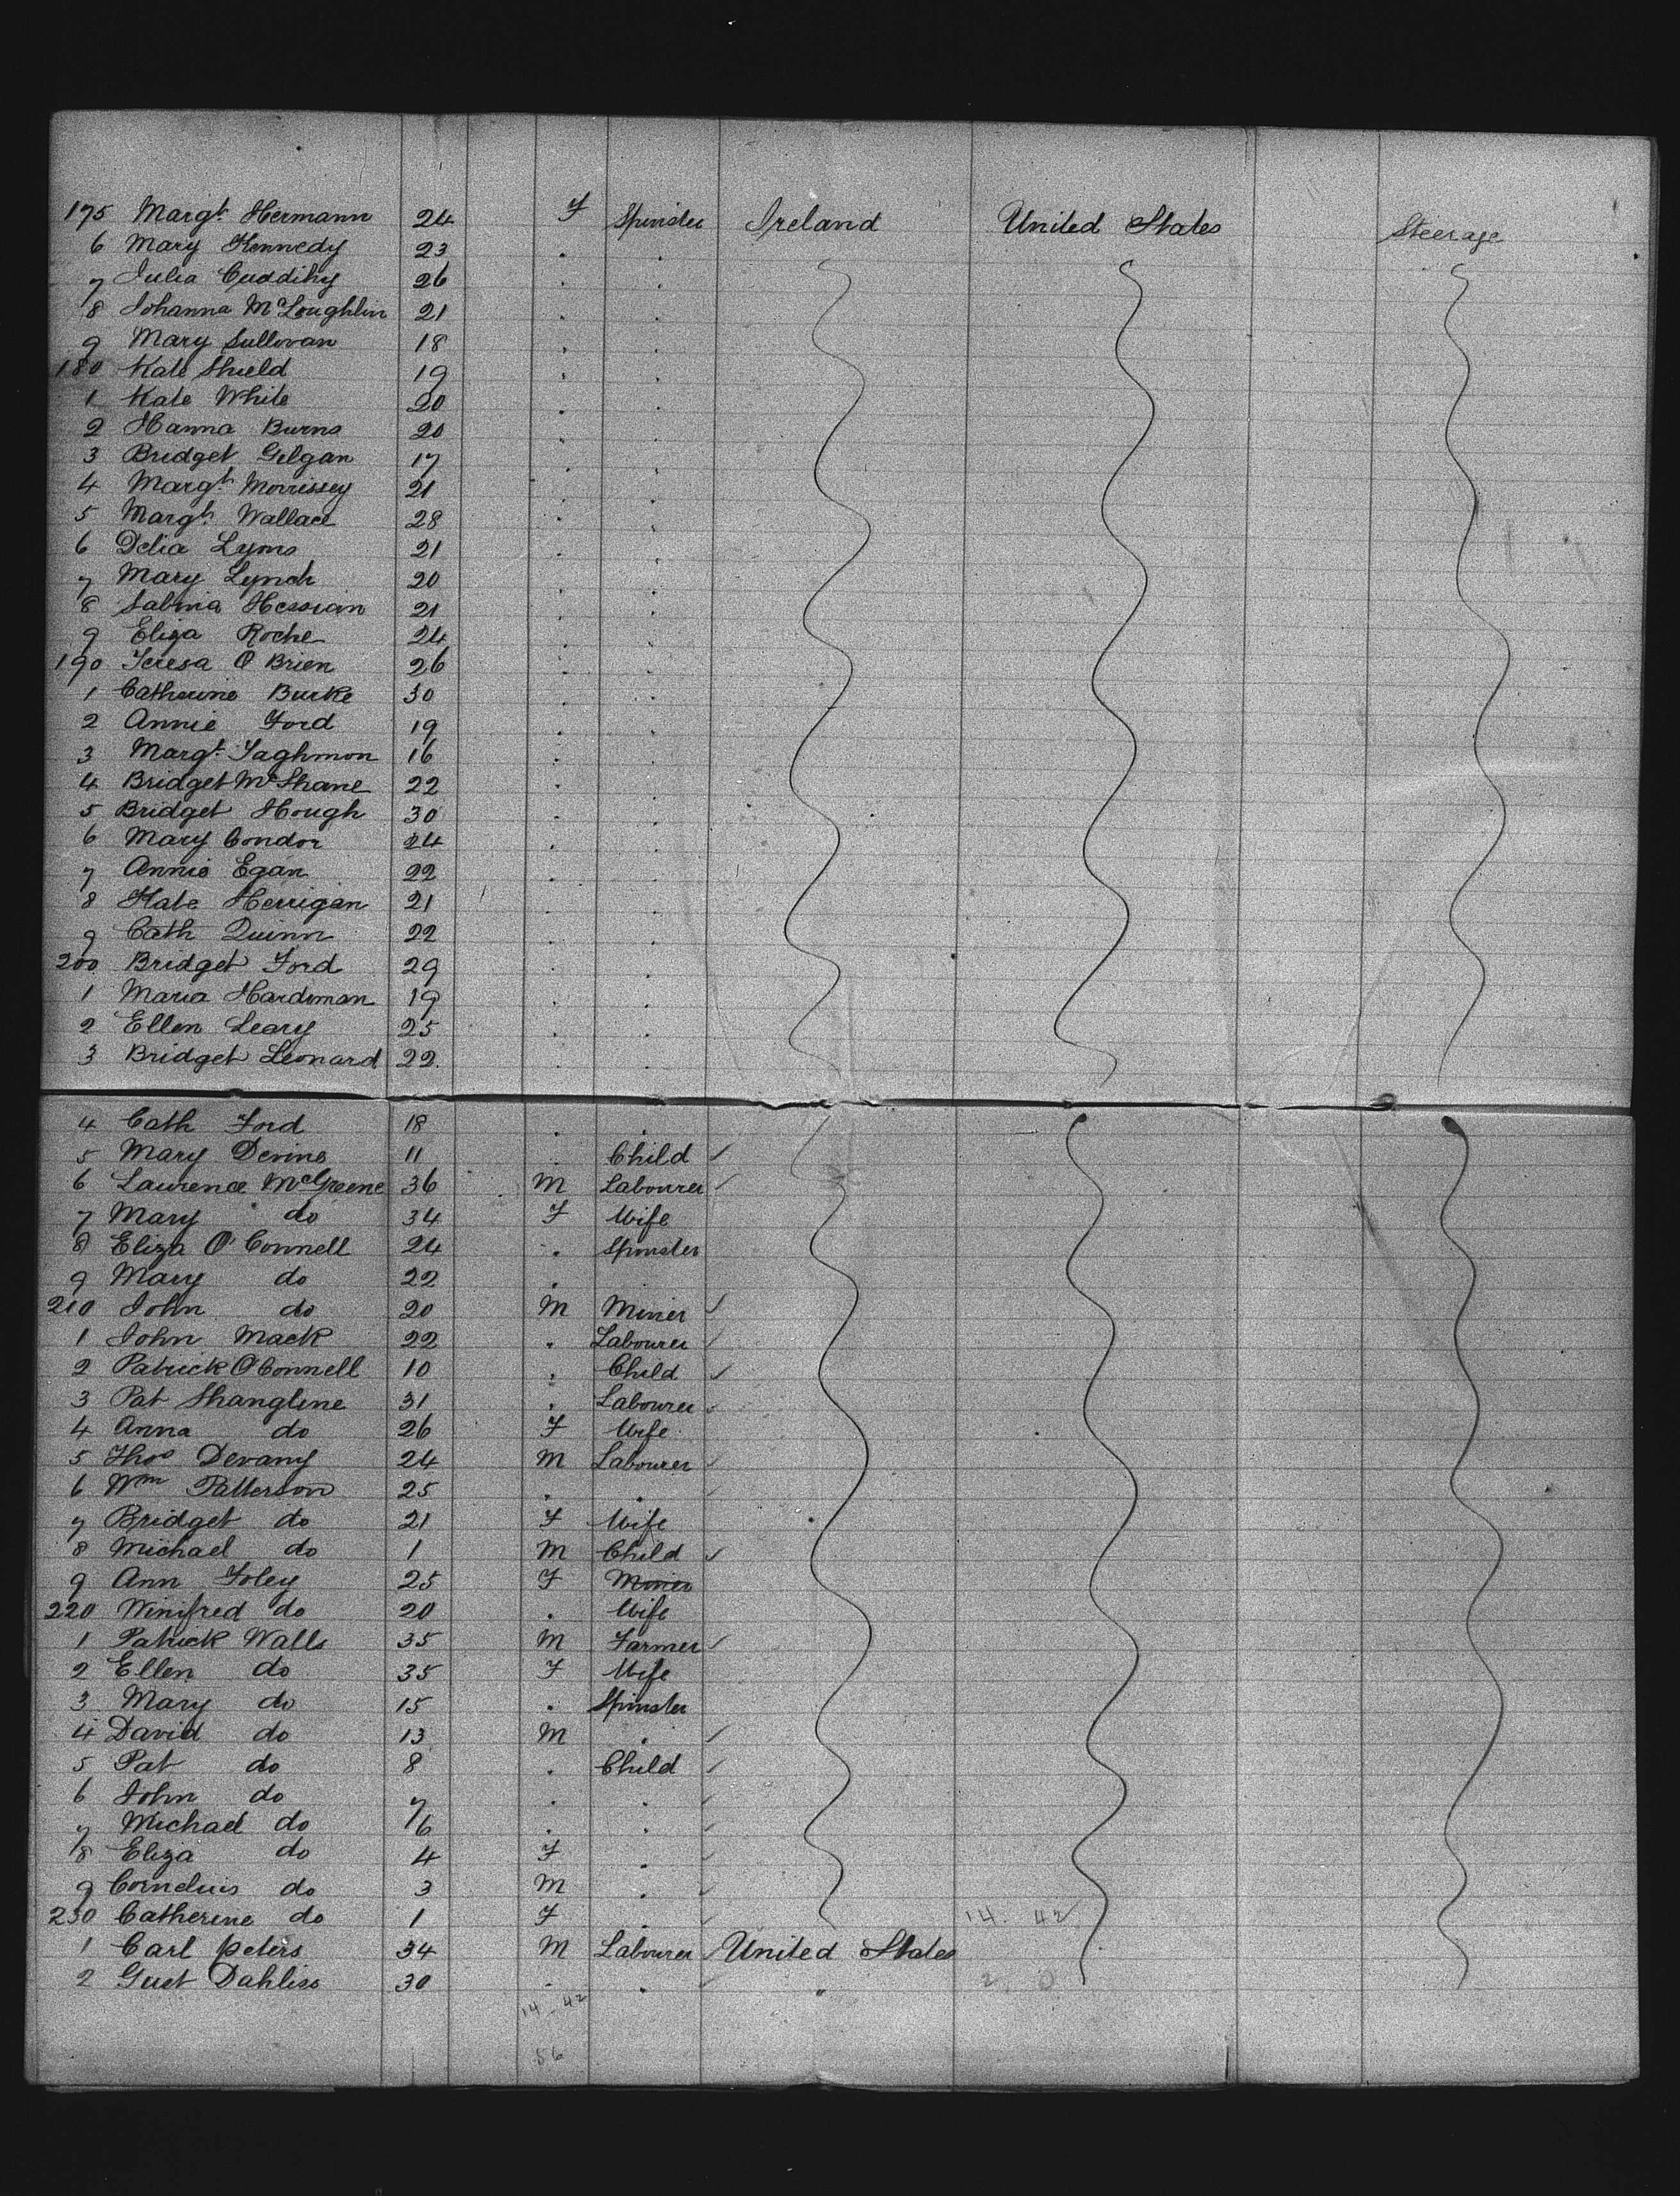 175 Margt Hermann 24 F Spinster Ireland United States Steerage
6 Mary Kennedy 23 . .
7 Julia Cuddihy 26 . .
8 Johanna McLoughlin 21 . .
9 Mary Sullivan 18 . .
180 Kate Shield 19 . .
1 Kate White 20 . .
2 Hanna Burns 20 . .
3 Bridget Gilgan 17 . .
4 Margt Morrissey 21 . .
5 Margt Wallace 28 . .
6 Delia Lyons 21 . .
7 Mary Lynch 20 . .
8 Sabina Hession 21 . .
9 Eliza Roche 24 . .
190 Teresa O Brien 26 . .
1 Catherine Burke 30 . .
2 Annie Ford 19 . .
3 Margt Taghmon 16 . .
4 Bridget McShane 22 . .
5 Bridget Hough 30 . .
6 Mary Condor 24 . .
7 Annie Egan 22 . .
8 Kate Herrigan 21 . .
9 Cath Quinn 22 . .
200 Bridget Ford 29 . .
1 Maria Hardiman 19 . .
2 Ellen Leary 25 . .
3 Bridget Leonard 22 . .
4 Cath Ford 18 . .
5 Mary Devine 11 Child ✓
6 Laurence McGreene 36 M Labourer ✓
7 Mary do 34 F Wife
8 Eliza O'Connell 24 . Spinster
9 Mary do 22 .
210 John do 20 M Miner ✓
1 John Mack 22 . Labourer ✓
2 Patrick O'Connell 10 . Child ✓
3 Pat Shangline 31 . Labourer ✓
4 Anna do 26 F Wife
5 Thos Devany 24 M Labourer ✓
6 Wm Patterson 25 . .
7 Bridget do 21 F Wife
8 Michael do 1 M Child ✓
9 Ann Foley 25 F Miner
220 Winifred do 20 . Wife
1 Patrick Walls 35 M Farmer ✓
2 Ellen do 35 F Wife
3 Mary do 15 . Spinster
4 David do 13 M . ✓
5 Pat do 8 . Child ✓
6 John do 7 . . ✓
7 Michael do 6 . . ✓
8 Eliza do 4 F . ✓
9 Cornelius do 3 M . ✓
230 Catherine do 1 F . ✓ 14. 42
1 Carl Peters 34 M Labourer ✓ United States
2 Gust Dahliss 30 . . ✓ " 2 0
14 - 42
56